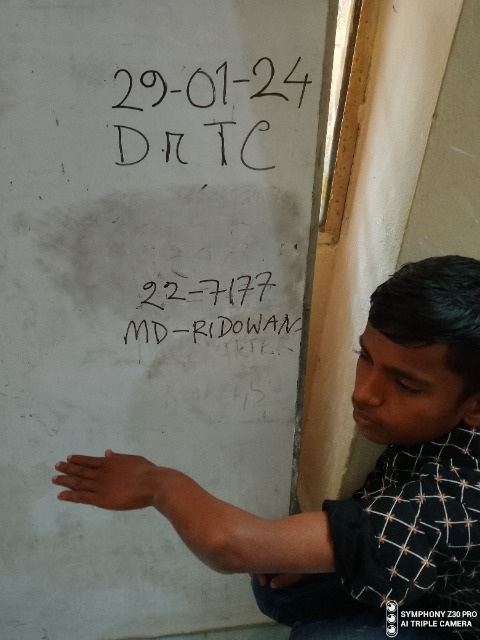 29-01-24
DnTC
22-7177
MD-RIDOWAN
SYMPHONY Z30 PRO
AI TRIPLE CAMERA